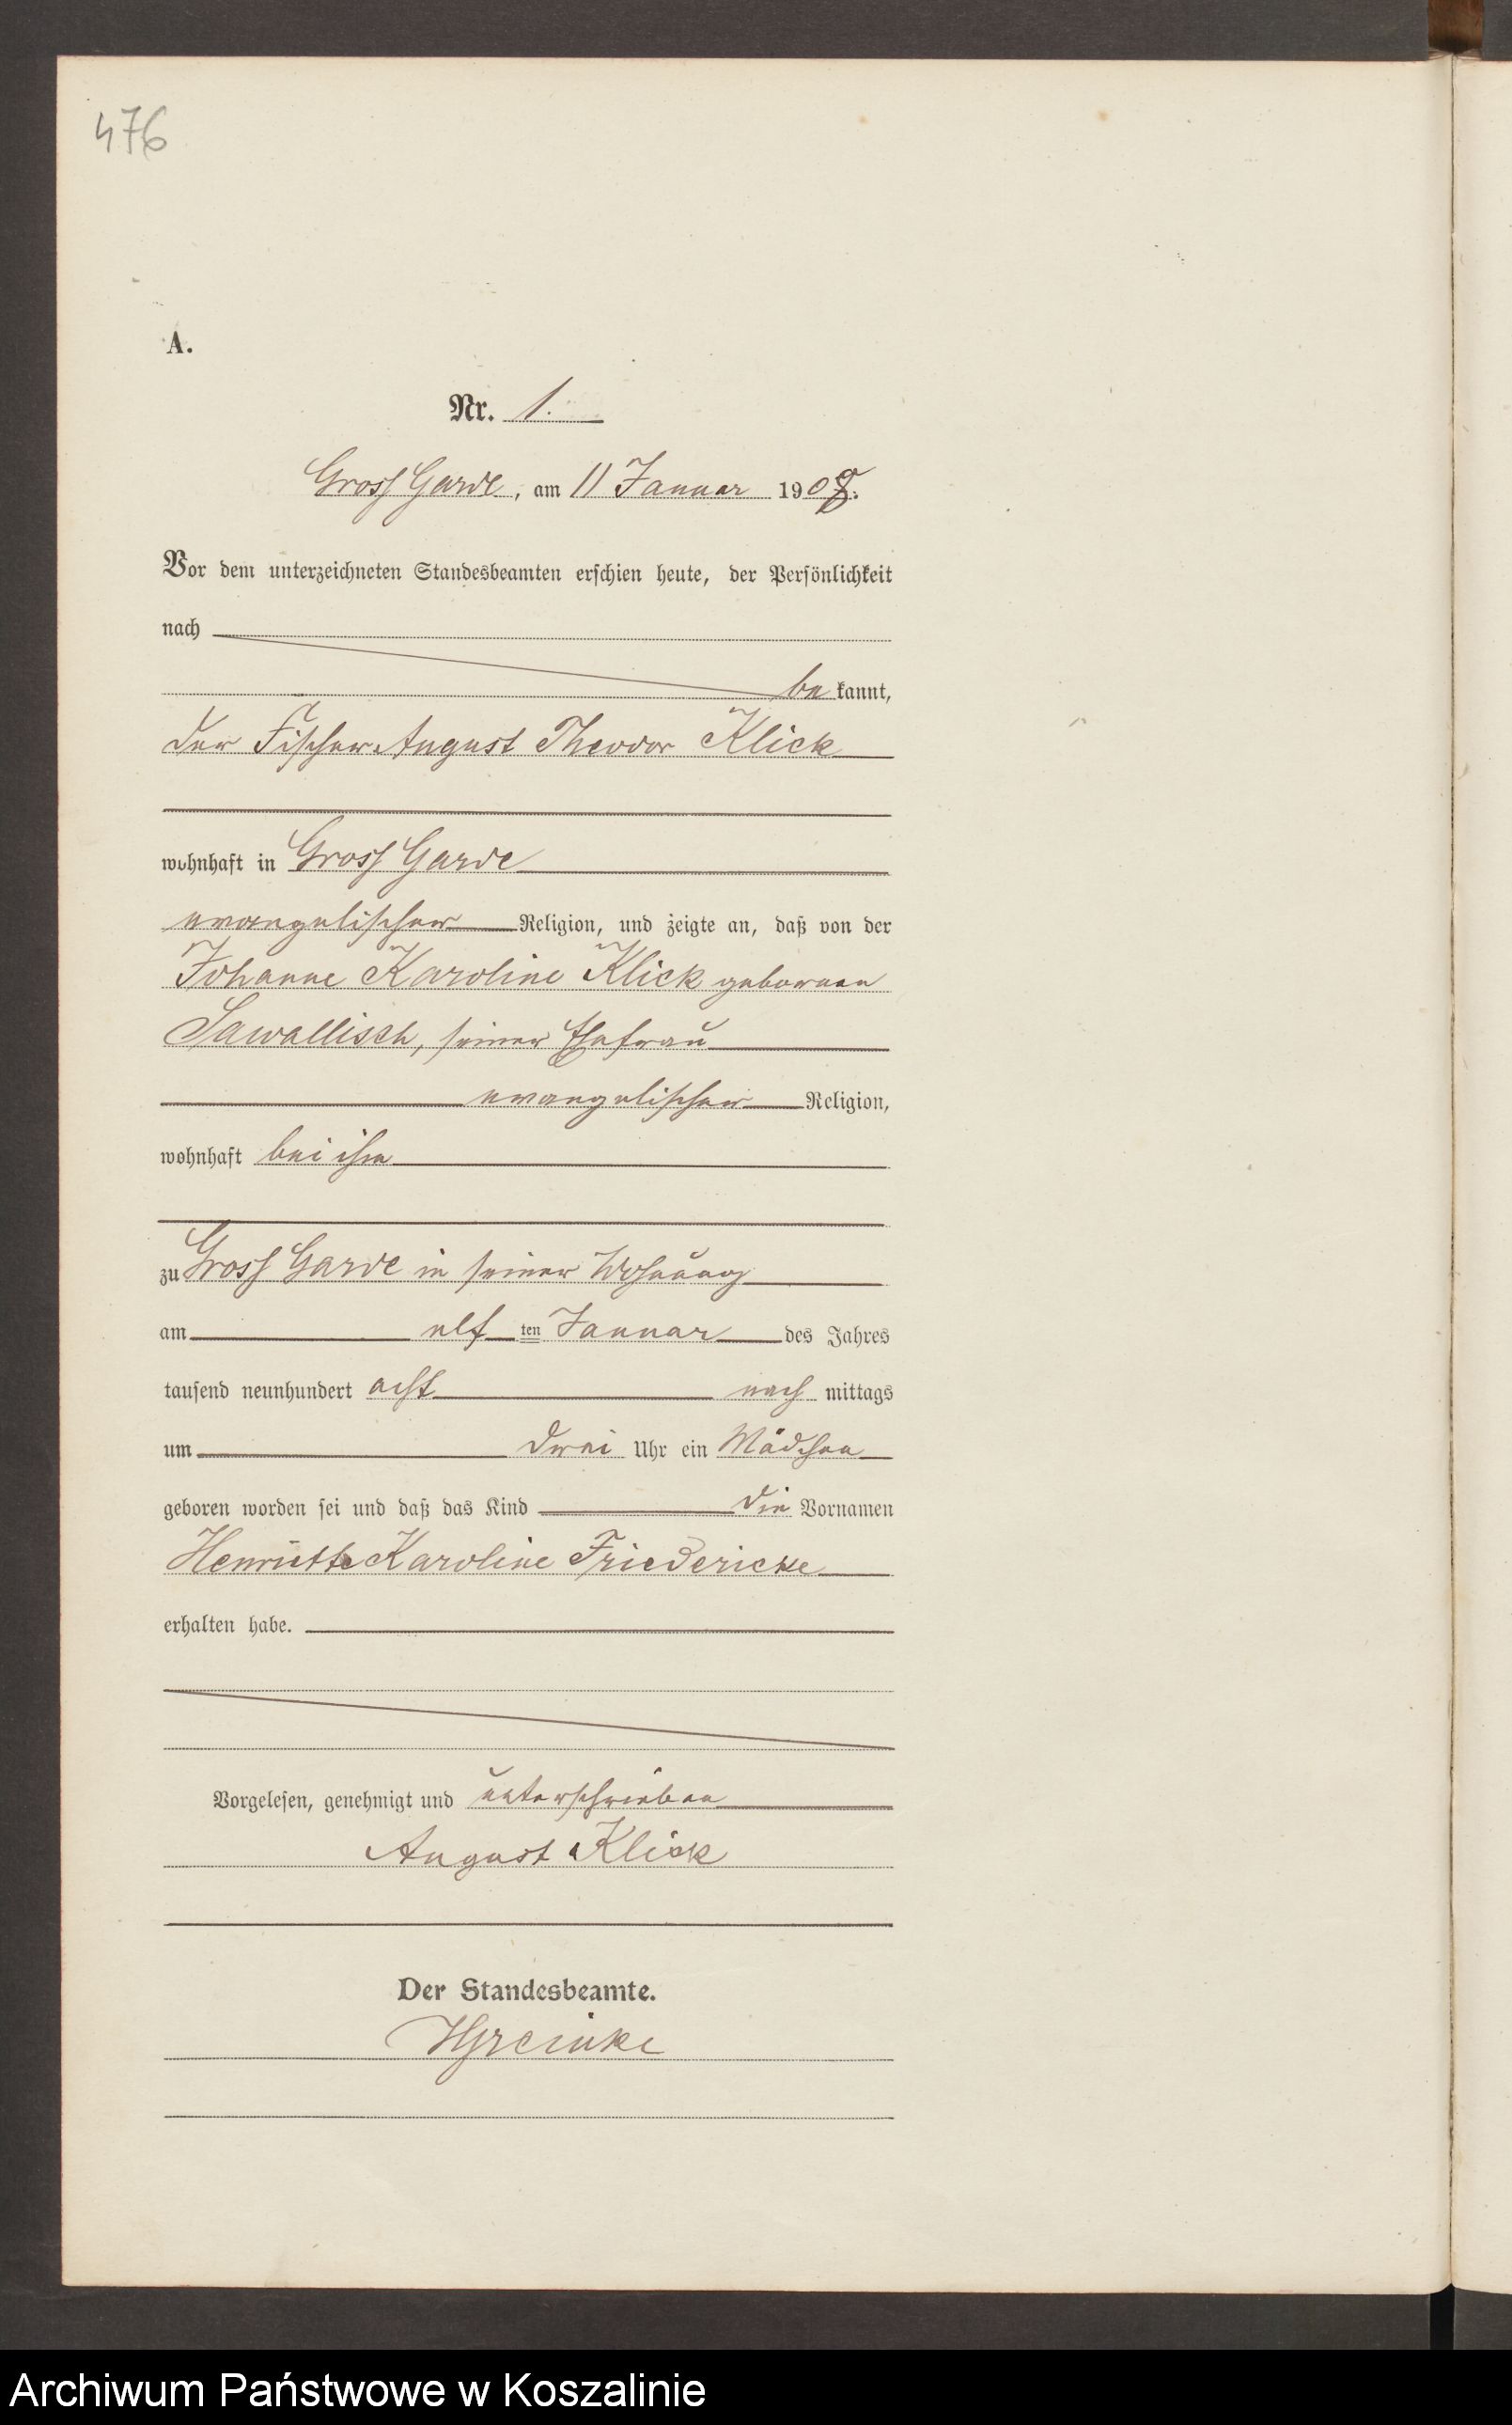 476
A.
Nr. 1.
Gross Garde, am 11 Januar 1908.
Vor dem unterzeichneten Standesbeamten erschien heute, der Persönlichkeit
nach
be kannt,
der Fischer August Theodor Klick
wohnhaft in Gross Garde
evangelischer Religion, und zeigte an, daß von der
Johanne Karoline Klick geborenen
Sawallisch, seiner Ehefrau
evangelischer Religion,
wohnhaft bei ihm
zu Gross Garde in seiner Wohnung
am elf ten Januar des Jahres
tausend neunhundert acht nach mittags
um drei Uhr ein Mädchen
geboren worden sei und daß das Kind die Vornamen
Henriette Karoline Friedericke
erhalten habe.
Vorgelesen, genehmigt und unterschrieben
August Klick
Der Standesbeamte.
Archiwum Państwowe w Koszalinie